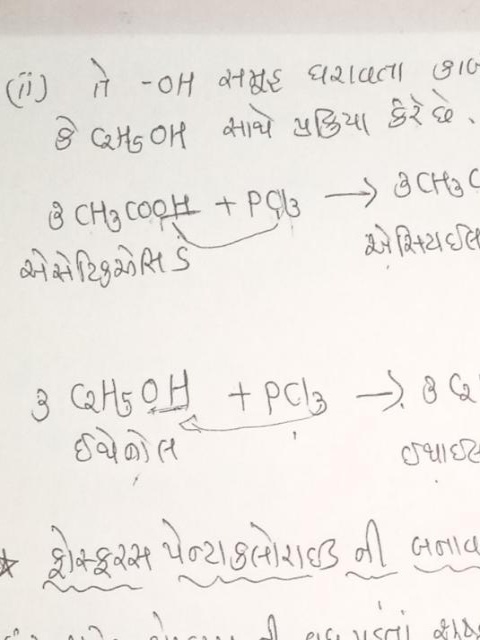 (ii) તે -OH સમૂહ ધરાવતા
કે C2H5OH સાથે પ્રક્રિયા કરે છે.
3 CH3COOH + PCl3 → 3CH3C
એસેટિકએસિડ એસિટાઈલ
3 C2H5OH + PCl3 → 3 C2
ઈથેનોલ ઈથાઈલ
* ફોસ્ફરસ પેન્ટાક્લોરાઈડ ની બનાવ